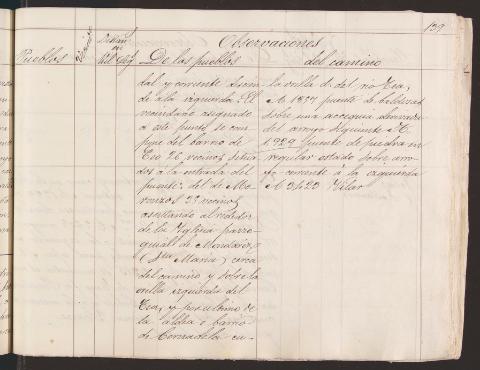 139
Observaciones
Pueblos
Vecinos
De las pueblos
del camino
dal y corriente
de á la izquierda. El
vecindario asignado
á este punto se com
pone del barrio de
Eio 26 vecinos, situa
dos á la entrada del
puente; del de Mo
renzo, 25 vecinos,
al rededor
de la Yglesia parro
quial de Mondariz,
(Sta Maria) cerca
del camino y sobre la
orilla izquierda del
Tea, y por ultimo de
la aldea ó barrio
de Cernadela cu-
la orilla d. del rio Tea;
A 1837 puente
sobre una acequia derivada
del arroyo siguiente A.
1929 puente de piedra en
regular estado sobre arro
yo corriente á la izquierda
A 3423 Vilar